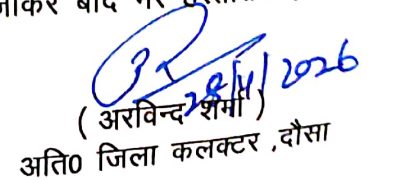 बाद
28/4/2026
( अरविन्द शर्मा )
अति0 जिला कलक्टर ,दौसा